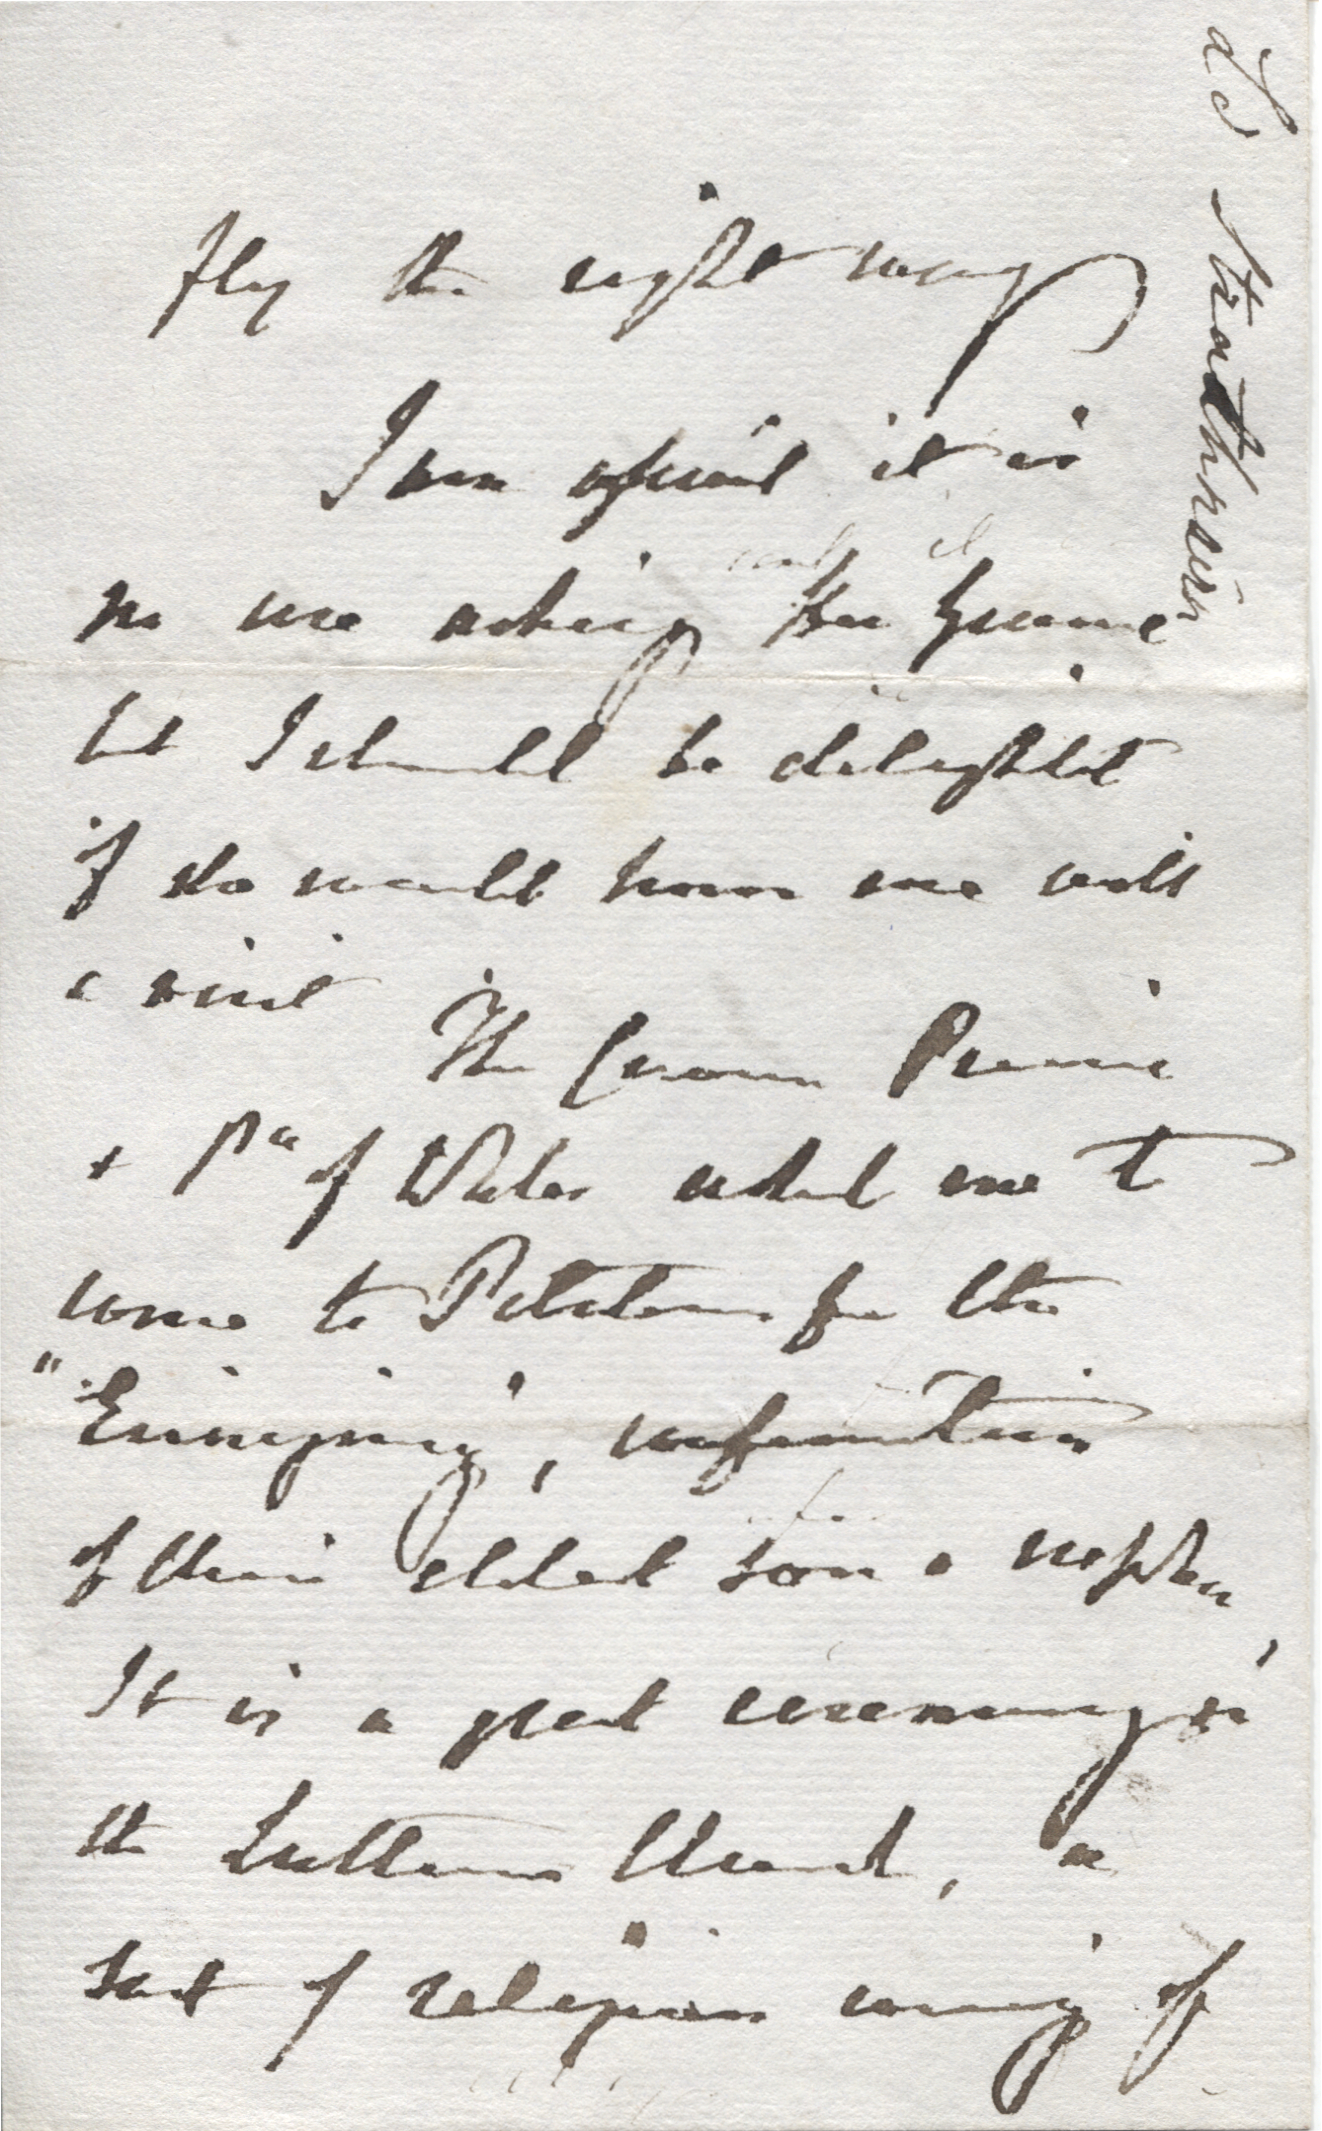 fly the right way
I am afraid it is
no use asking the Graeme
but I should be delighted
if she would honor me with
a visit The Crown Prince
+ Pss of Wales asked me to
come to Potsdam for the
"Einsegnung", confirmation
of their eldest son & nephew,
It is a great ceremony in
the Lutheran Church, a
sort of religious coming of
at Strathnairn